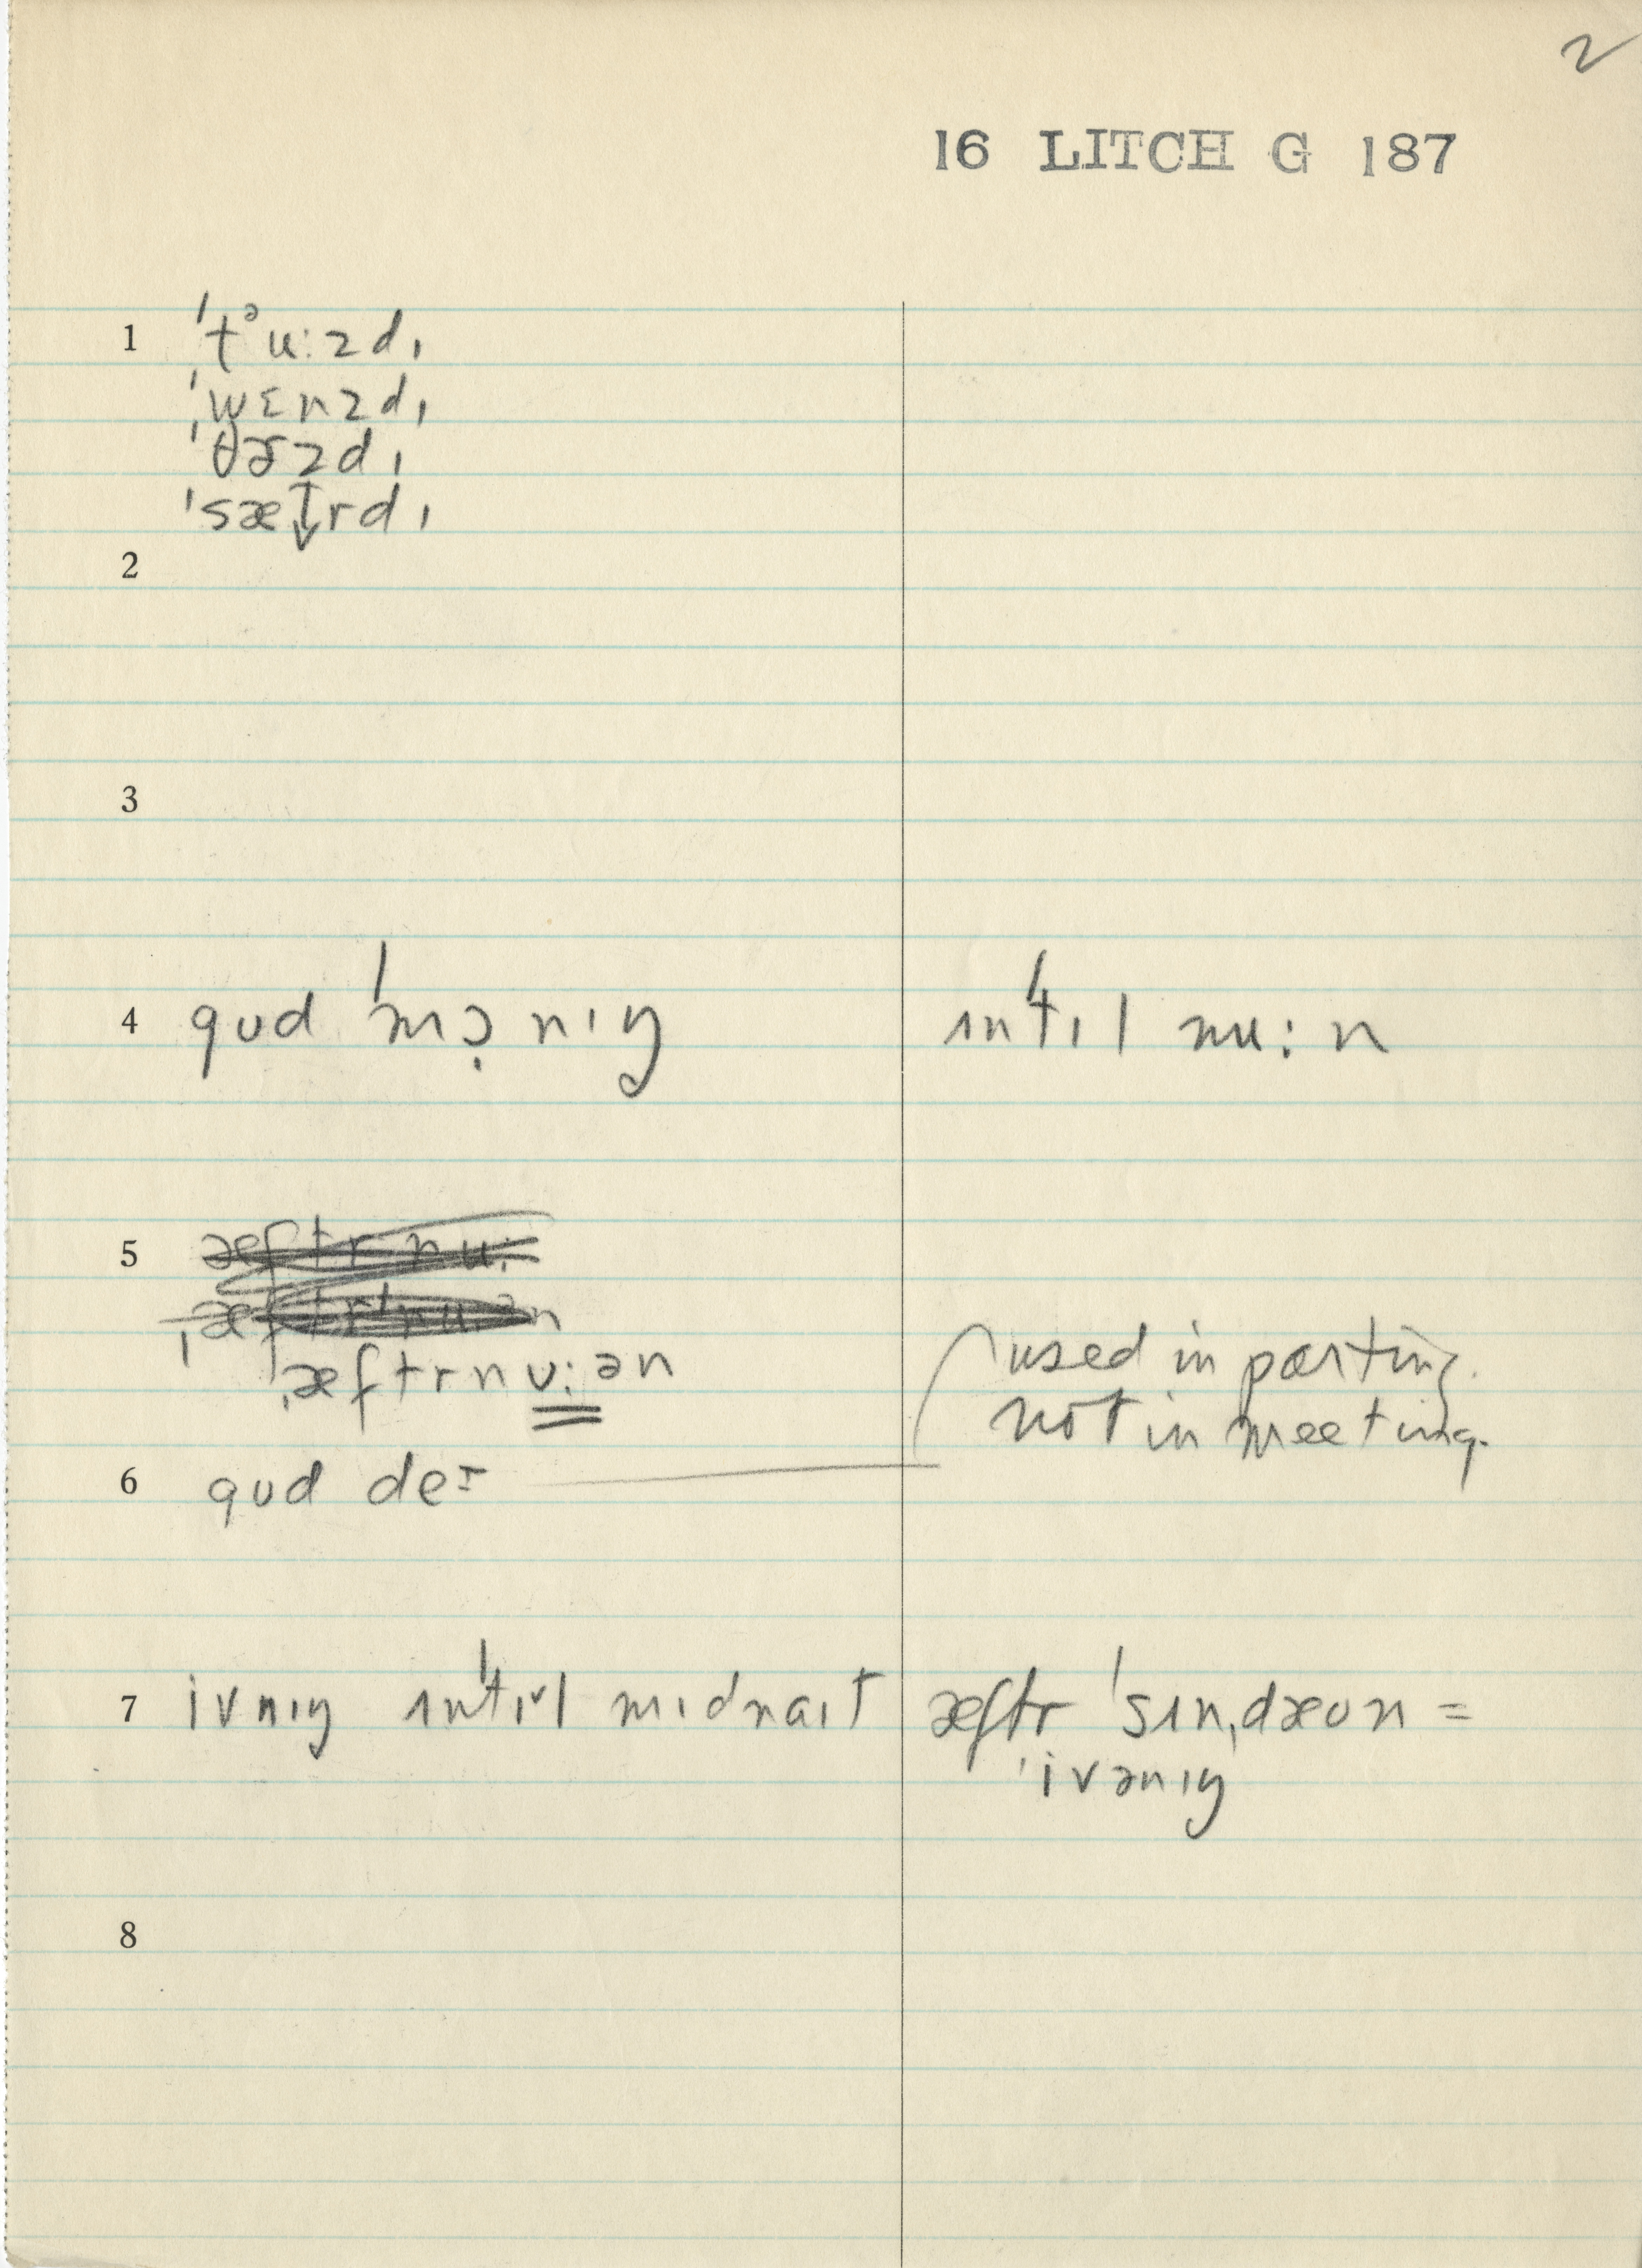 2
16 LITCH G 187
1 ˈtᵊu:zdɪ
ˈwɛnzdɪ
ˈθɝzdɪ
ˈsæt̬rdɪ
2
3
4 gʊd ˈmɔ̣nɪŋ ɪnˈtɪl nu:n
5
ˌæftrnʊ:ən
used in parting.
not in meeting.
6 gʊd de=
7 ivnɪŋ ɪnˈtɪ˅l mɪdnaɪt æftr ˈsɪnˌdæʊn =
ˈivənɪŋ
8